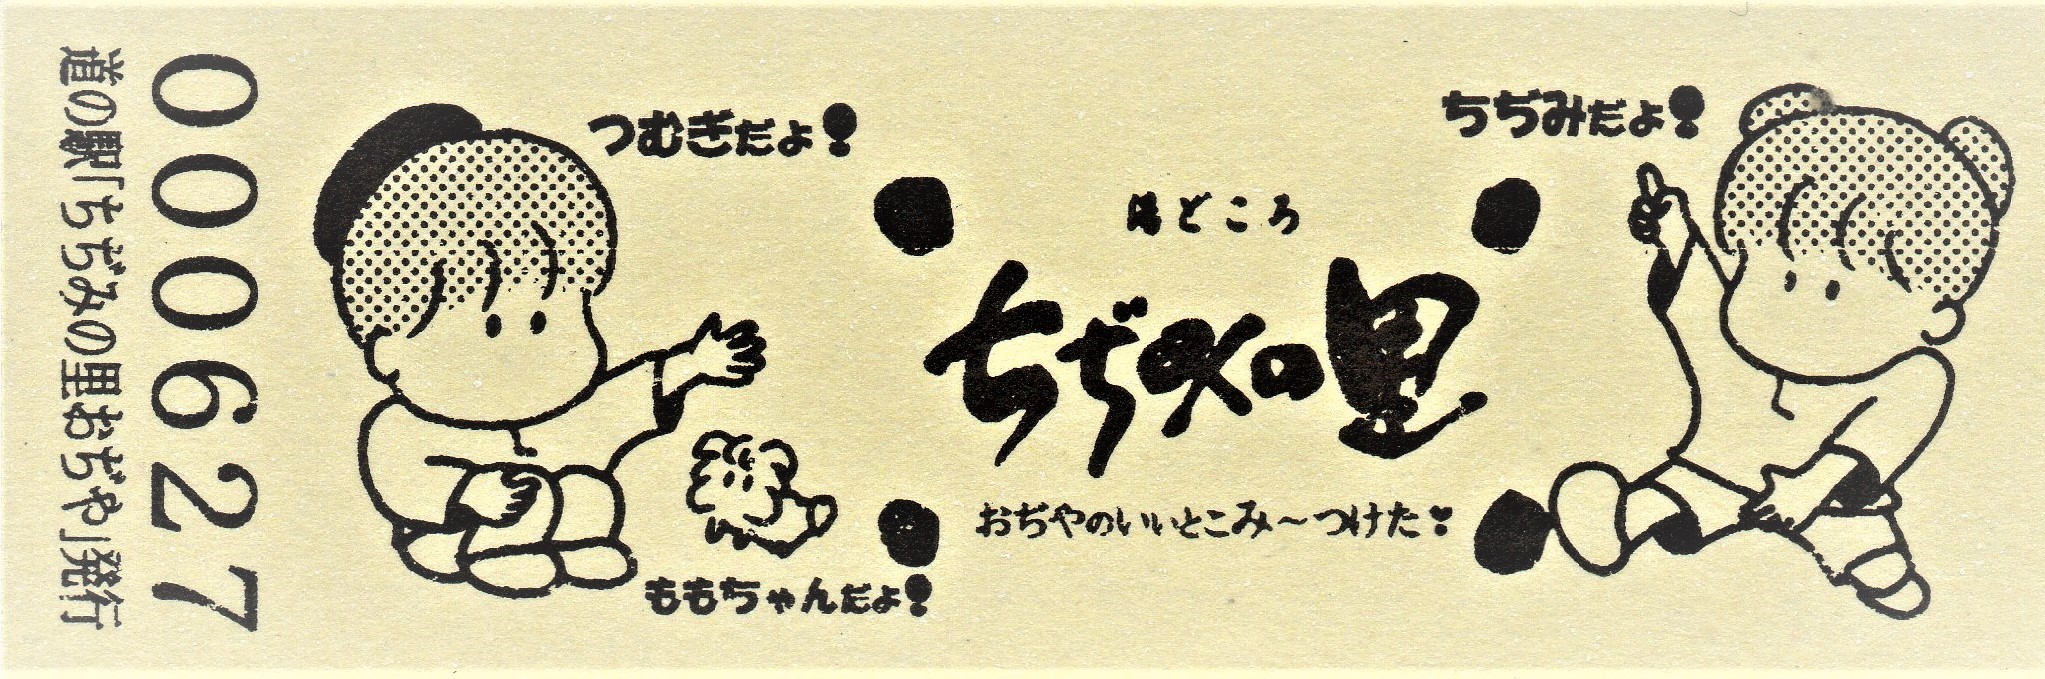 道の駅「ちぢみの里おぢや」発行
000627
つむぎだよ!
ちぢみだよ!
湯どころ
ちぢみの里
おぢやのいいとこみ～つけた♥
ももちゃんだよ!